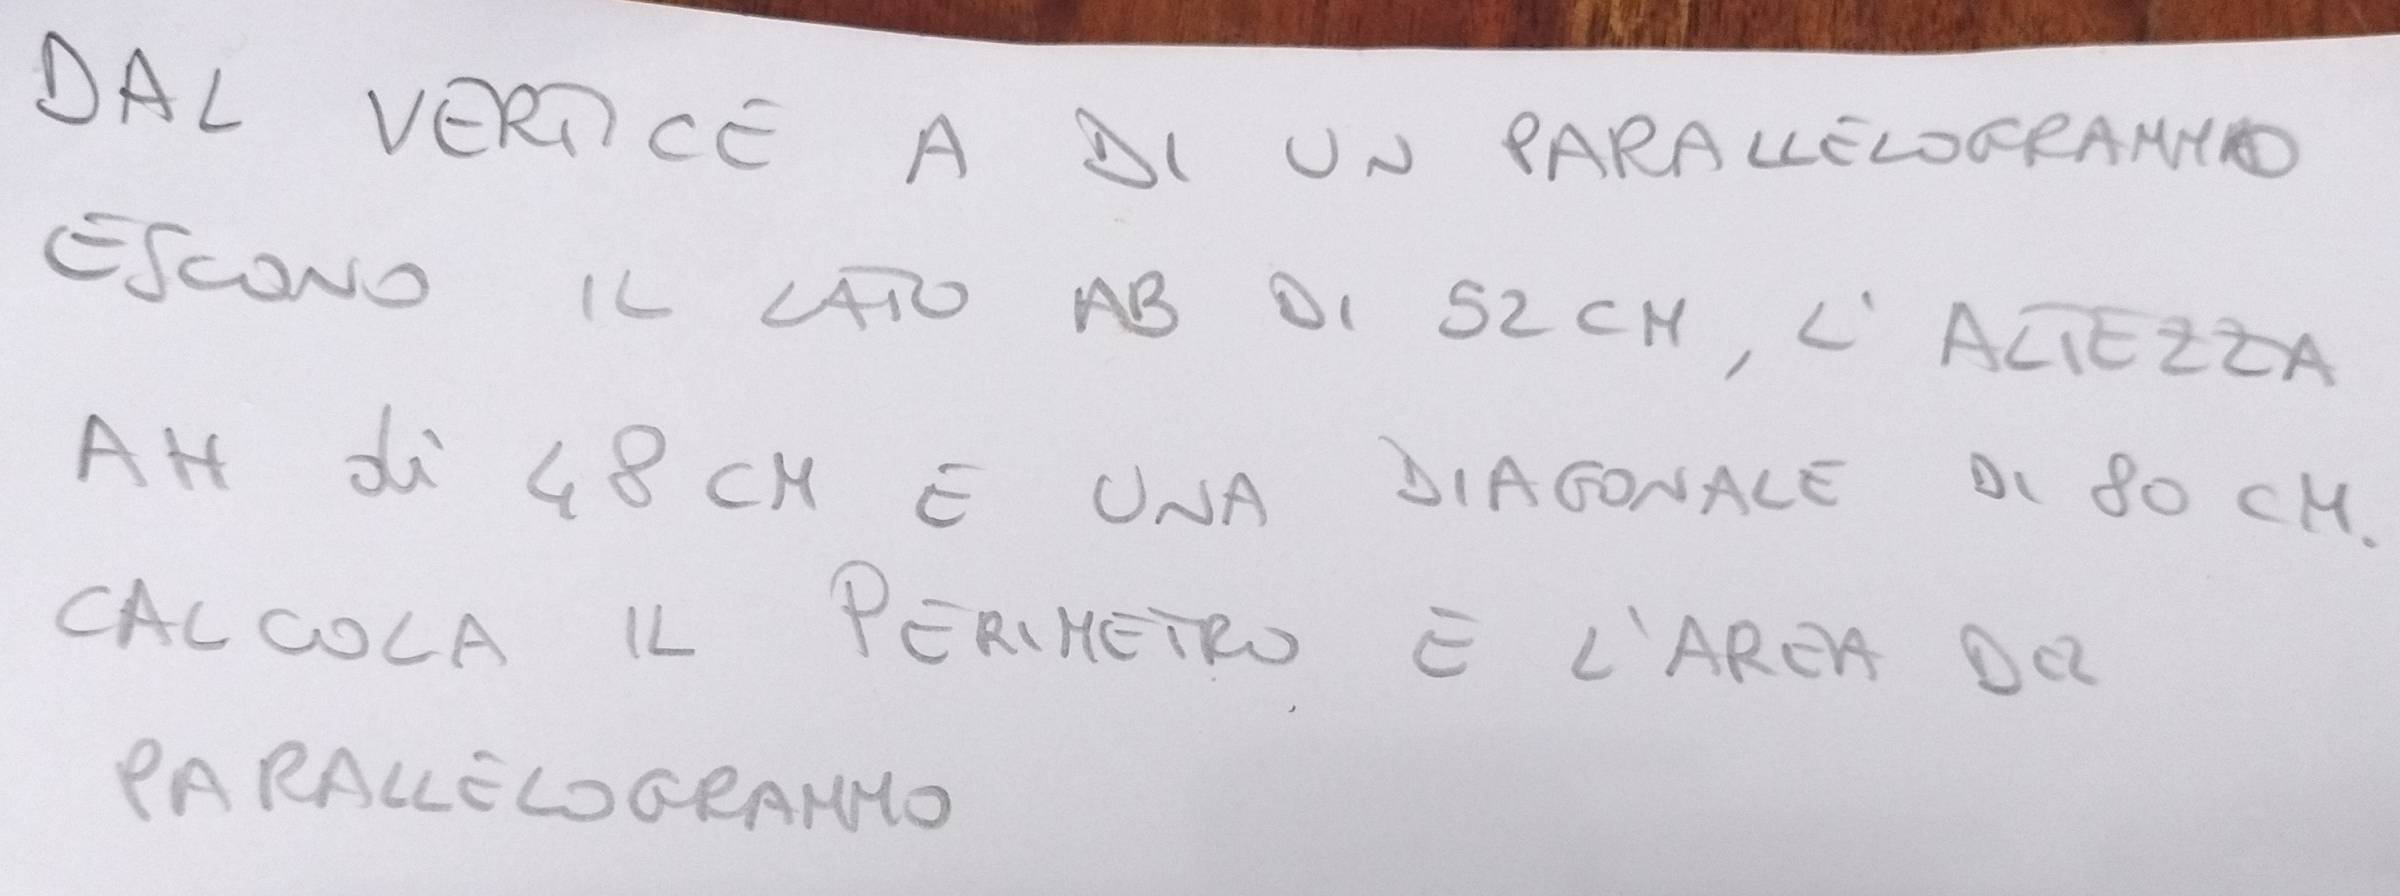 DAL VERTICE A DI UN PARALLELOGRAMMO
ESCONO IL LATO AB DI 52 CM, L'ALTEZZA
AH di 48 CM E UNA DIAGONALE DI 80 CM.
CALCOLA IL PERIMETRO E L'AREA DEL
PARALLELOGRAMMO